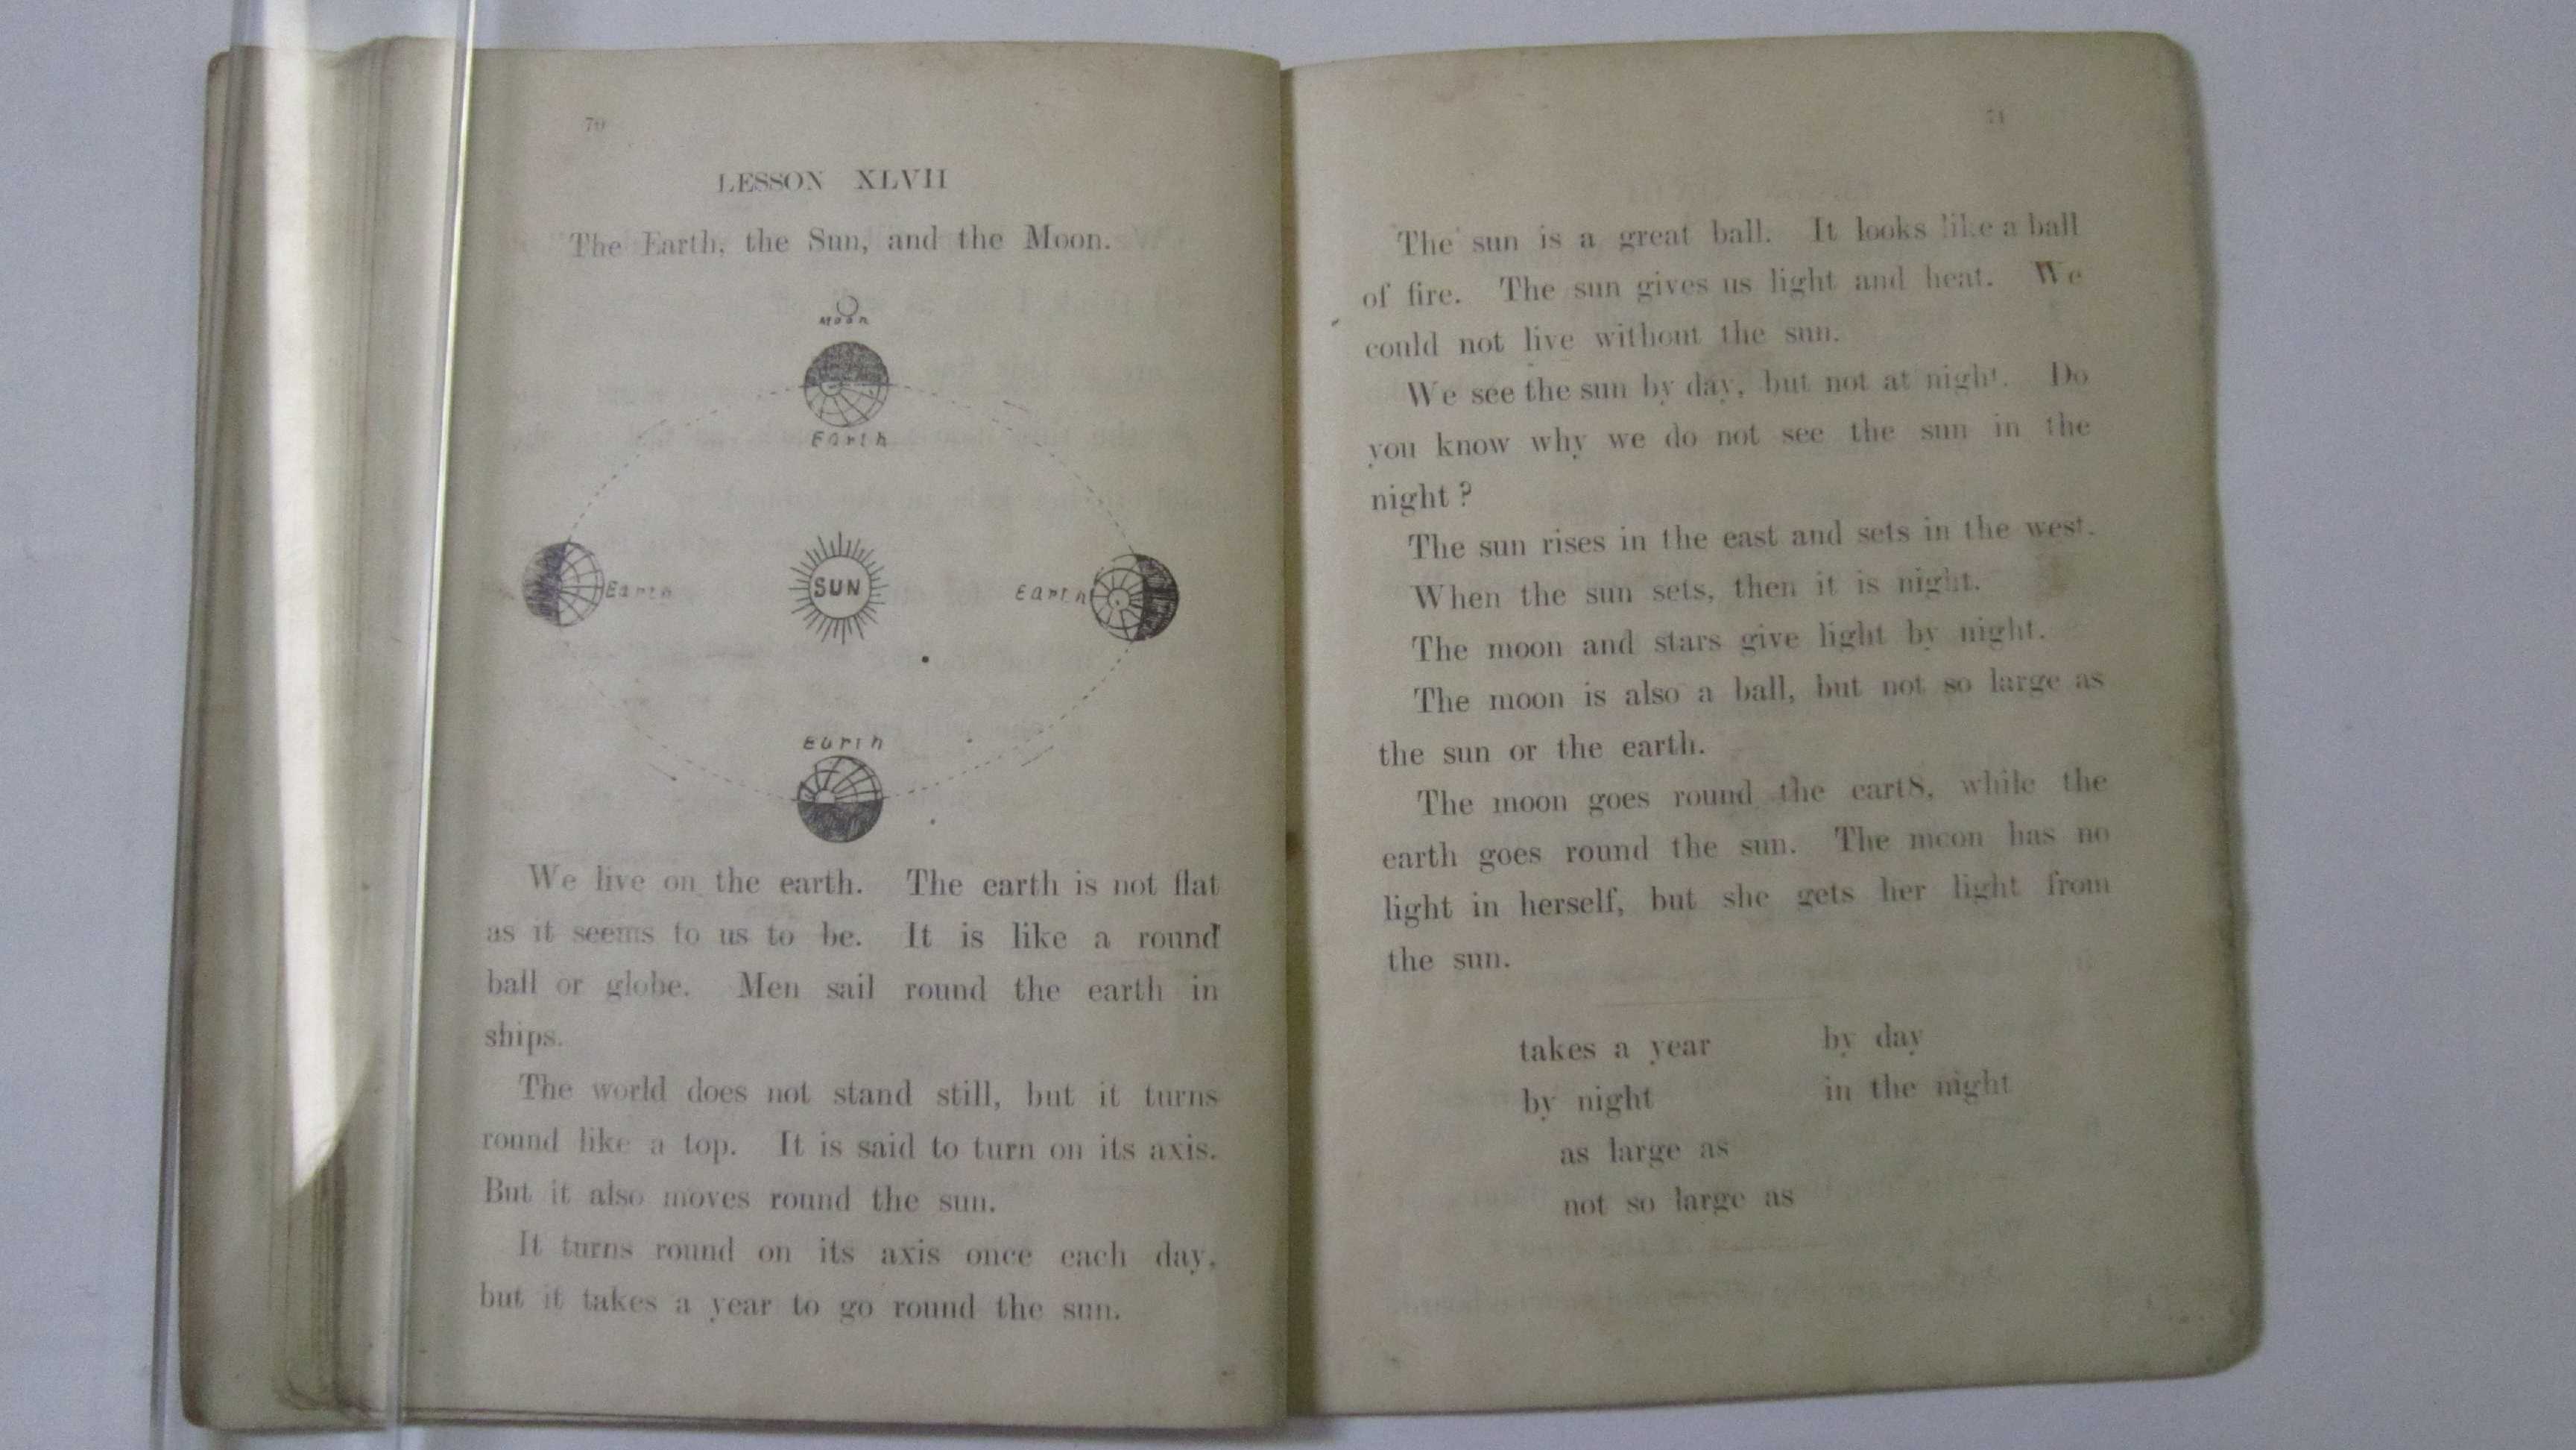 70
LESSON XLVII
The Earth, the Sun, and the Moon.
Moon
Earth
Earth
SUN
Earth
Earth
We live on the earth. The earth is not flat
as it seems to us to be. It is like a round
ball or globe. Men sail round the earth in
ships.
The world does not stand still, but it turns
round like a top. It is said to turn on its axis.
But it also moves round the sun.
It turns round on its axis once each day,
but it takes a year to go round the sun.
71
The sun is a great ball. It looks like a ball
of fire. The sun gives us light and heat. We
could not live without the sun.
We see the sun by day, but not at night. Do
you know why we do not see the sun in the
night ?
The sun rises in the east and sets in the west.
When the sun sets, then it is night.
The moon and stars give light by night.
The moon is also a ball, but not so large as
the sun or the earth.
The moon goes round the eartS, while the
earth goes round the sun. The mcon has no
light in herself, but she gets her light from
the sun.
takes a year by day
by night in the night
as large as
not so large as